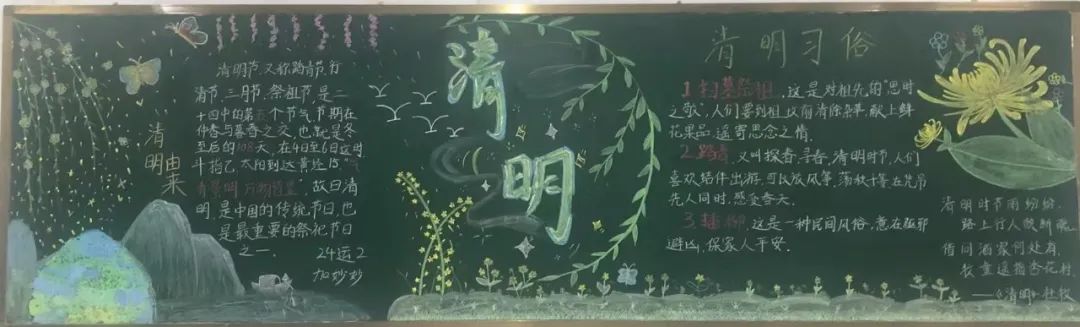 清明由来
清明节，又称踏青节、行
清节、三月节、祭祖节，是二
十四中的第五个节气，节期在
仲春与暮春之交，也就是冬
至后的108天，在4日至6日这时
斗指乙，太阳到达黄经15°"气
清景明 万物皆显"，故曰清
明，是中国的传统节日，也
是最重要的祭祀节日
之一.
24运2
加妙妙
清
明
清明习俗
1 扫墓祭祖，这是对祖先的"思时
之敬"，人们要到祖坟前清除杂草，献上鲜
花果品，遥寄思念之情.
2. 踏青，又叫探春、寻春，清明时节，人们
喜欢结伴出游，可以放风筝，荡秋千等在凭吊
先人同时，感受春天.
3. 插柳，这是一种民间风俗，意在驱邪
避凶，保家人平安.
清明时节雨纷纷，
路上行人欲断魂.
借问酒家何处有，
牧童遥指杏花村.
——《清明》杜牧